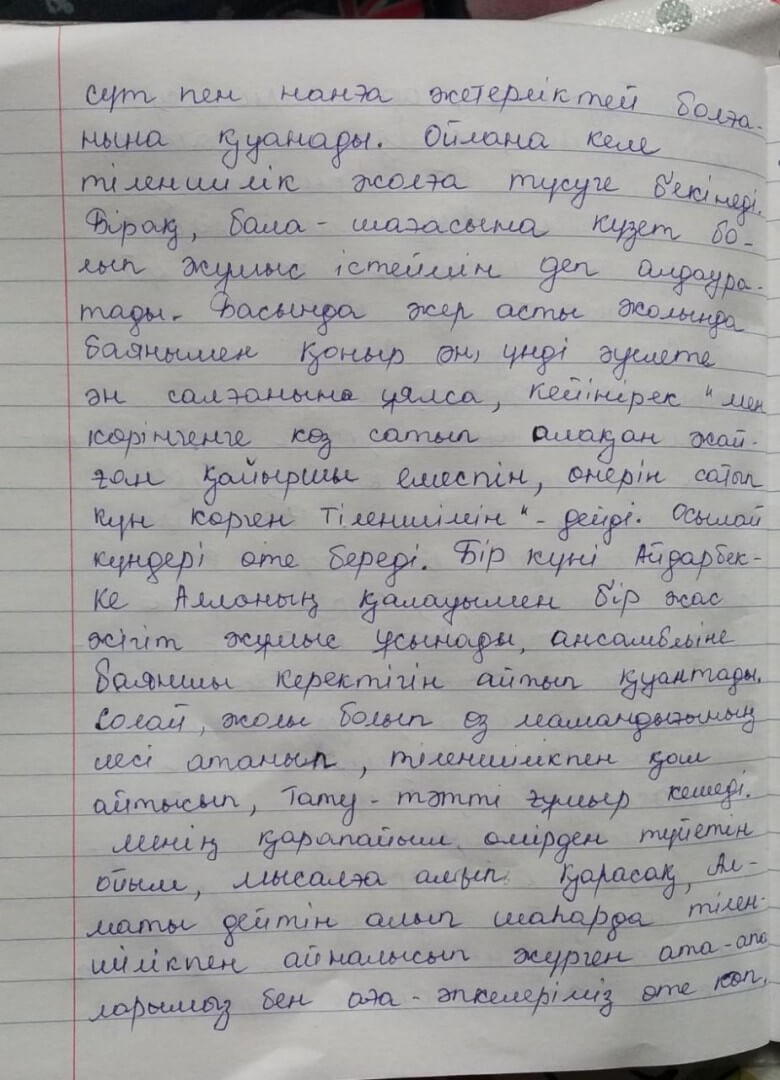 сүт пен нанға жетерліктей болға-
нына қуанады. Ойлана келе
тіленшілік жолға түсуге бекінеді.
Бірақ, бала-шағасына күзет бо-
лып жұмыс істеймін деп алдаура-
тады. Басында жер асты жолында
баянымен қоңыр ән, үнді әуелете
ән салғанына ұялса, кейінірек "мен
көрінгенге көз сатып алақан жай-
ған қайыршы емеспін, өнерін сатып
күн көрген тіленшімін"- дейді. Осылай
күндері өте береді. Бір күні Айдарбек-
ке Алланың қалауымен бір жас
жігіт жұмыс ұсынады, ансамбліне
баяншы керектігін айтып қуантады.
Солай, жолы болып өз мамандығының
иесі атанып, тіленшілікпен қош
айтысып, тату-тәтті ғұмыр кешеді.
Менің қарапайым өмірден түйетін
ойым, мысалға алып қарасақ, Ал-
маты дейтін алып шаһарда тілен-
шілікпен айналысып жүрген ата-апа
ларымыз бен аға-әпкелеріміз өте көп,